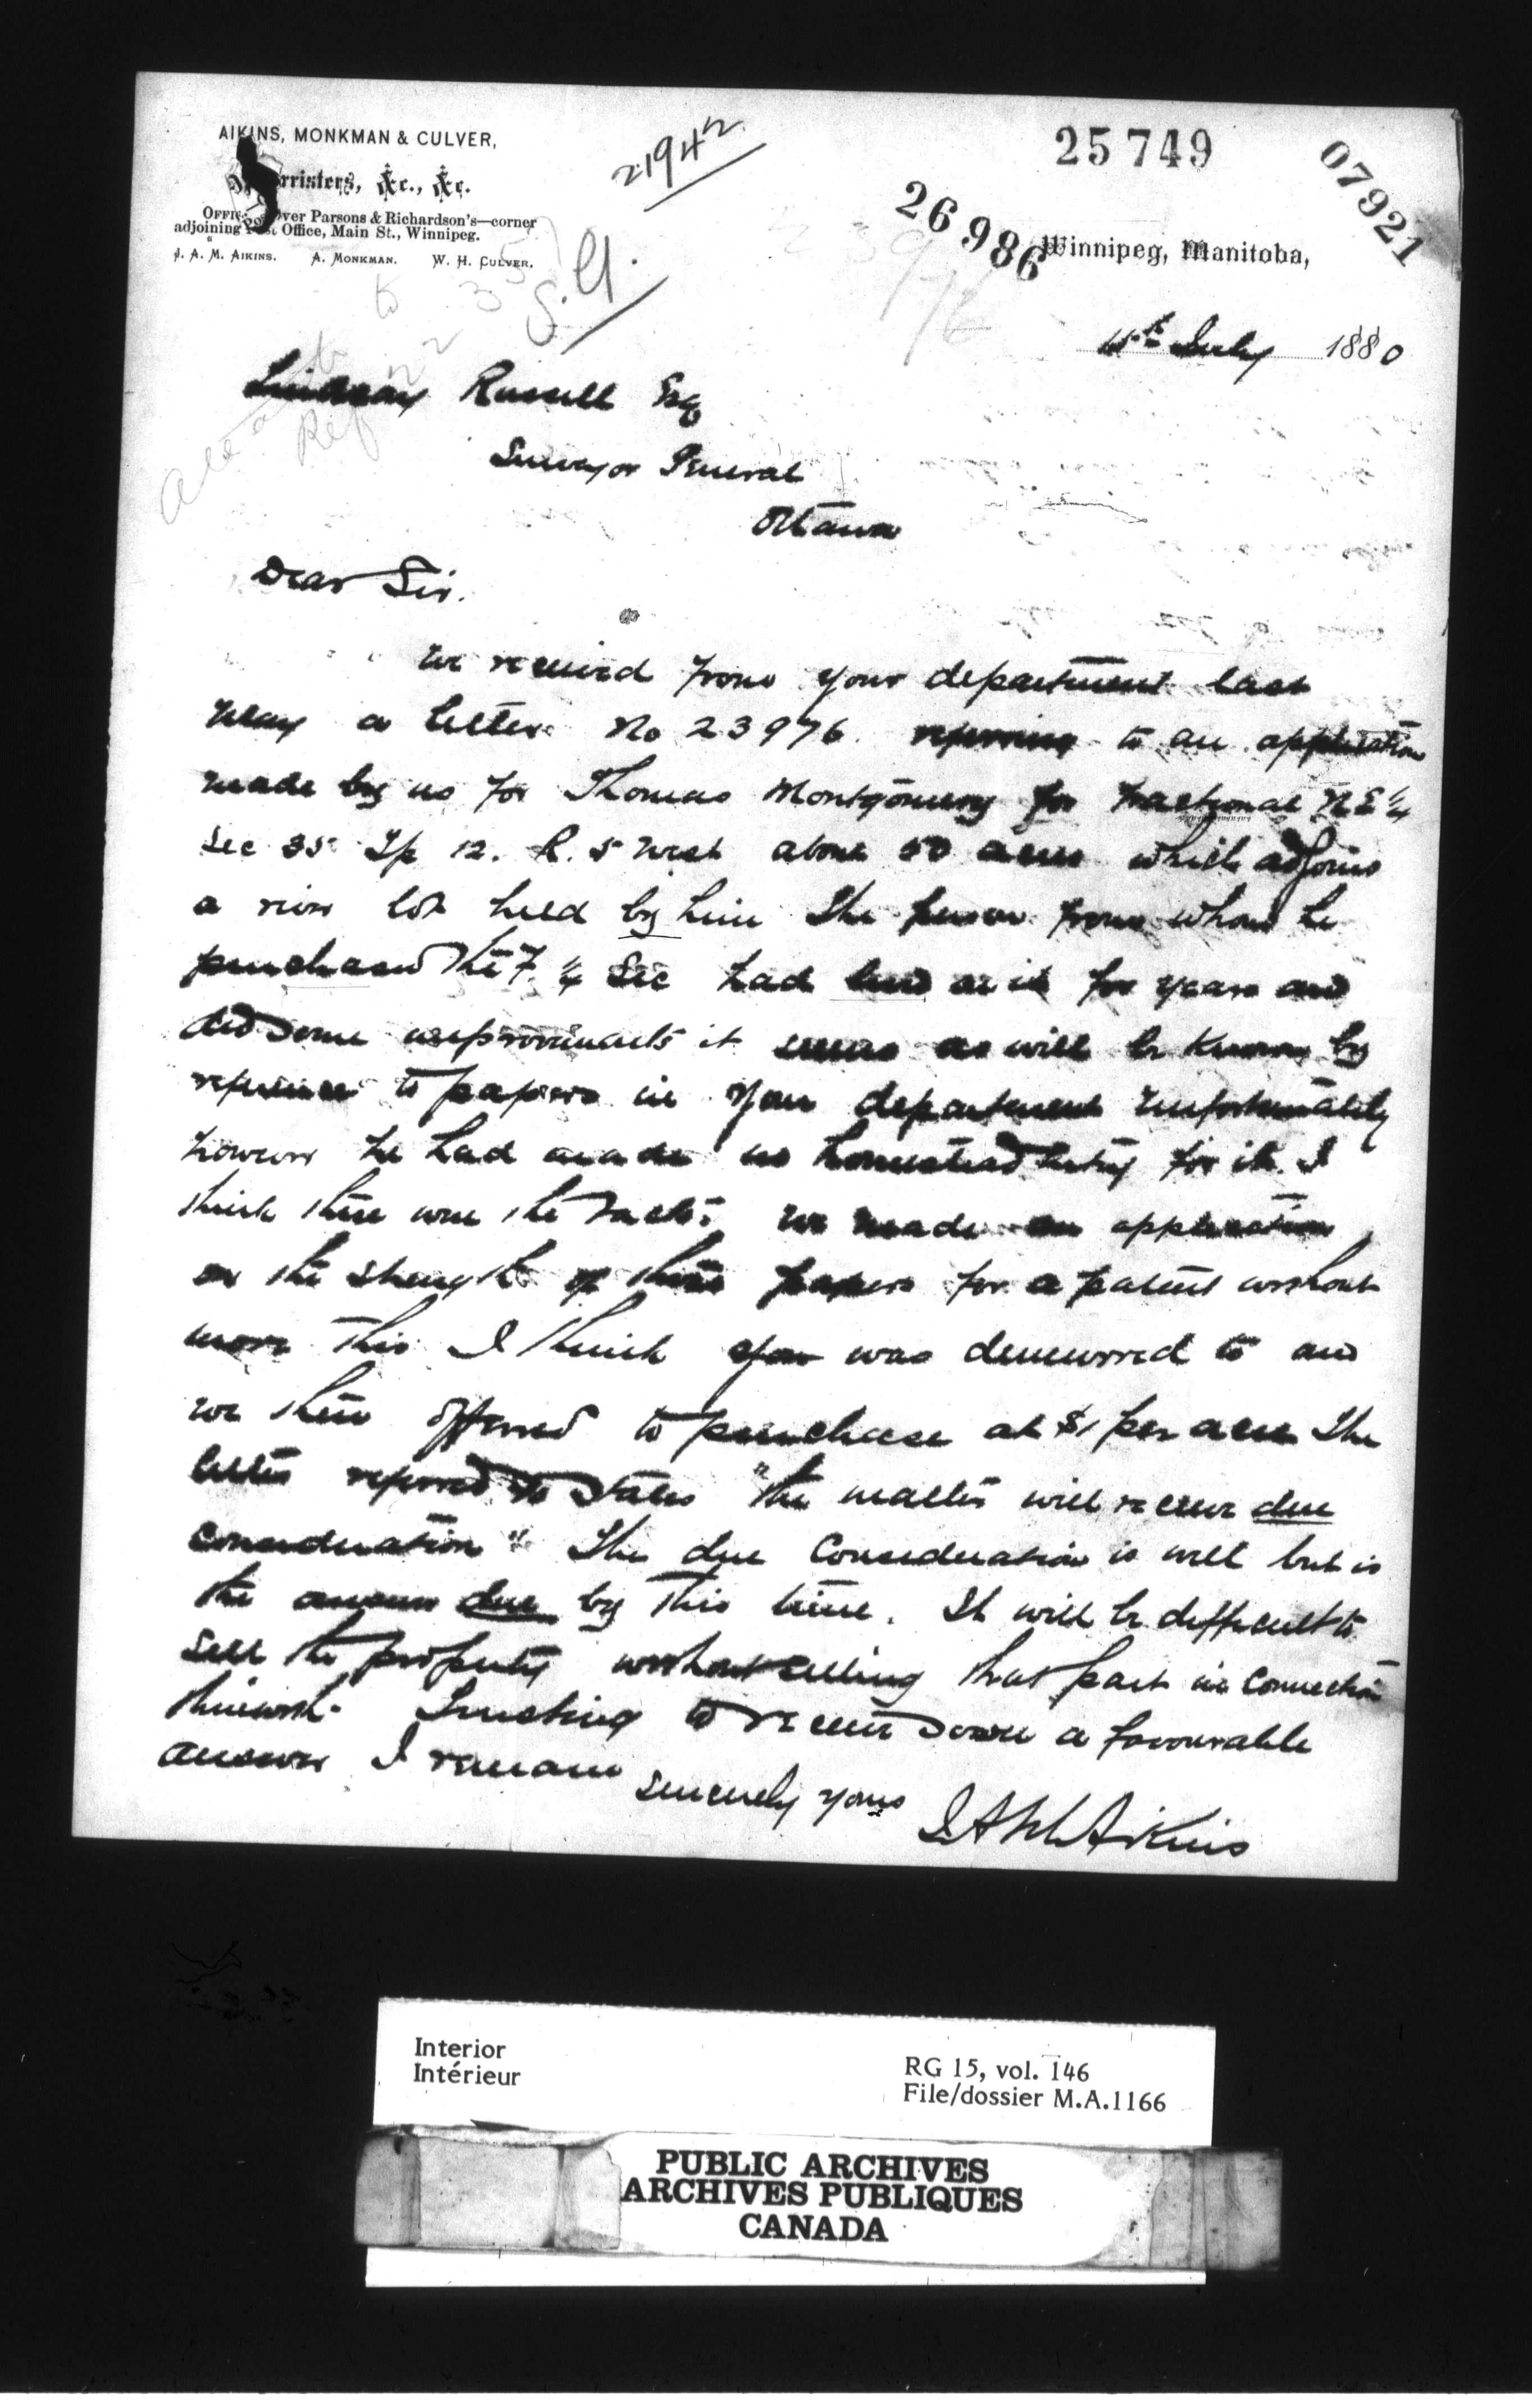 AIKINS, MONKMAN & CULVER,
Barristers, &c., &c.
OFFICE: Over Parsons & Richardson's—corner
adjoining Post Office, Main St., Winnipeg.
J. A. M. AIKINS. A. MONKMAN. W. H. CULVER.
21942
25749
07921
26986
23976
Winnipeg, Manitoba,
15th July 1880
Lindsay Russell Esq
Surveyor General
Ottawa
Dear Sir.
We received from your department last
May a letter No 23976 referring to an application
made by us for Thomas Montgomery for fractional N E 1/4
Sec 35 Tp 12. R. 5 West about 50 acres which adjoins
a river lot held by him The person from whom he
purchased the F. 1/4 Sec had lived on it for years and
did some improvements it seems as will be known by
reference to papers in your department unfortunately
however he had made no homestead entry for it. I
think these were the facts. We made an application
on the strength of these papers for a patent without
more This I think you was demurred to and
we then offered to purchase at $1 per acre The
letter referred to states "the matter will receive due
consideration" The due consideration is well but is
the answer due by this time. It will be difficult to
sell the property without selling that part in connection
therewith. Trusting to receive soon a favourable
answer I remain
sincerely yours
J A M Aikins
Interior
Intérieur
RG 15, vol. 146
File/dossier M.A.1166
PUBLIC ARCHIVES
ARCHIVES PUBLIQUES
CANADA